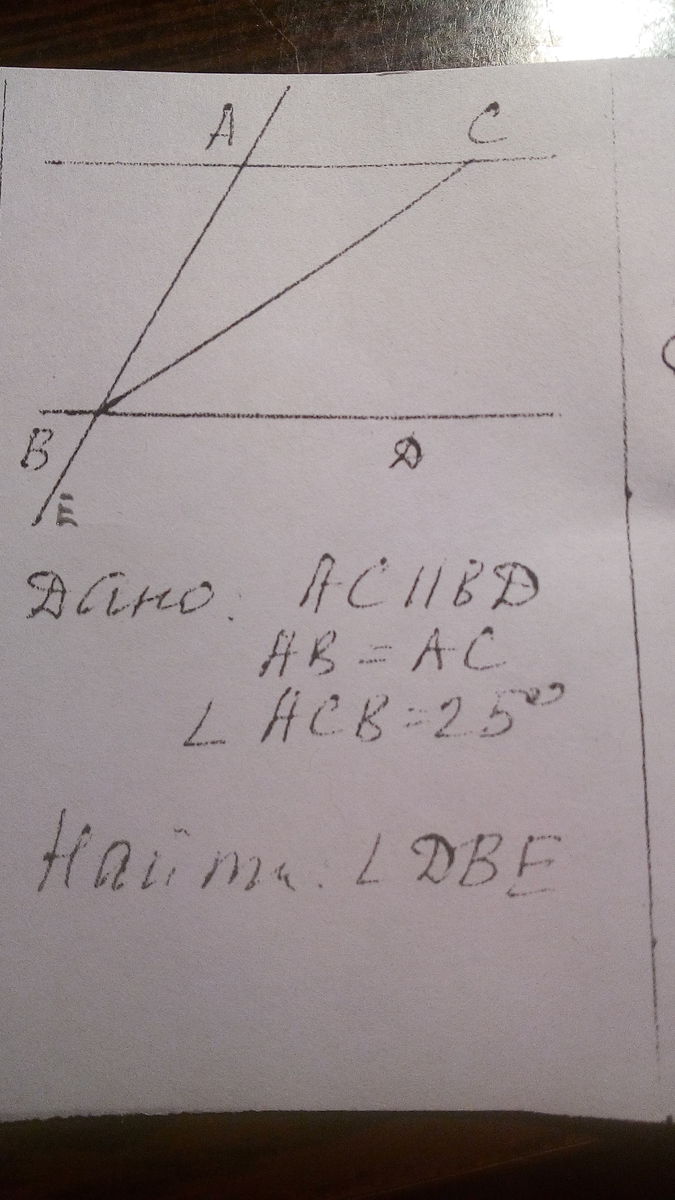 A C
B D
E
Дано: AC || BD
AB = AC
∠ ACB = 25°
Найти: ∠ DBE